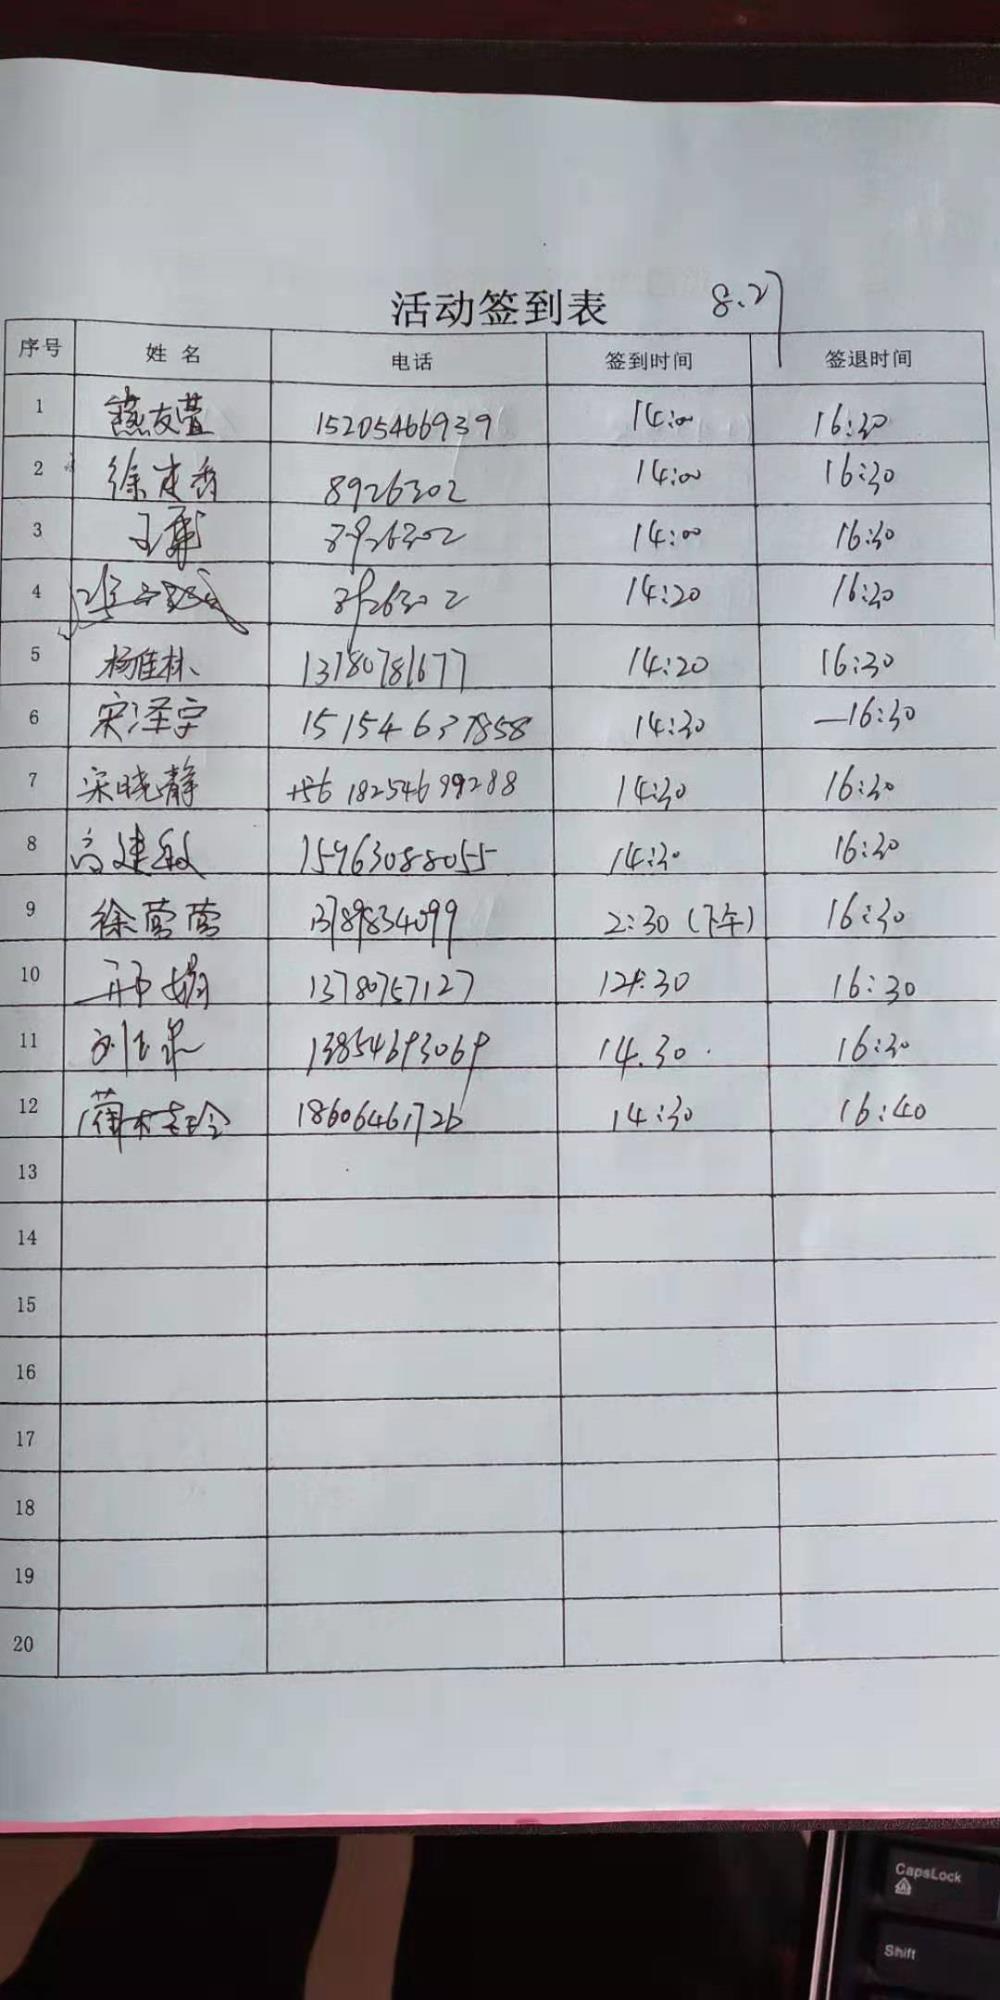 活动签到表 8.27
序号 姓名 电话 签到时间 签退时间
1 燕友萱 15205466939 14:00 16:30
2 徐 香 8926302 14:00 16:30
3 王 8926302 14:00 16:30
4 8926302 14:20 16:30
5 杨佳林 13780781677 14:20 16:30
6 宋泽宇 15154637858 14:30 —16:30
7 宋晓静 +86 18254699288 14:30 16:30
8 高建敏 15963088055 14:30 16:30
9 徐莺莺 13789834099 2:30 (下午) 16:30
10 邢娟 13780757127 14:30 16:30
11 刘 13854693069 14.30 16:30
12 蔺桂玲 18606461726 14:30 16:40
13
14
15
16
17
18
19
20
CapsLock
Shift